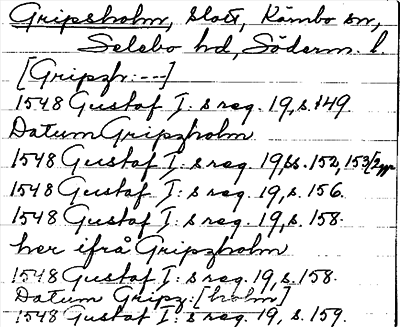 Gripsholm, slott, Kärnbo sn,
Selebo hd, Söderm. l.
[Gripzh:---]
1548 Gustaf I: s reg. 19, s. 149
Datum Gripzholm
1548 Gustaf I: s reg. 19, ss. 152, 153/2ggr
1548 Gustaf I: s reg. 19, s. 156.
1548 Gustaf I: s reg. 19, s. 158.
her ifrå Gripzholm
1548 Gustaf I: s reg. 19, s. 158.
Datum Gripz:[holm]
1548 Gustaf I: s reg. 19, s. 159.